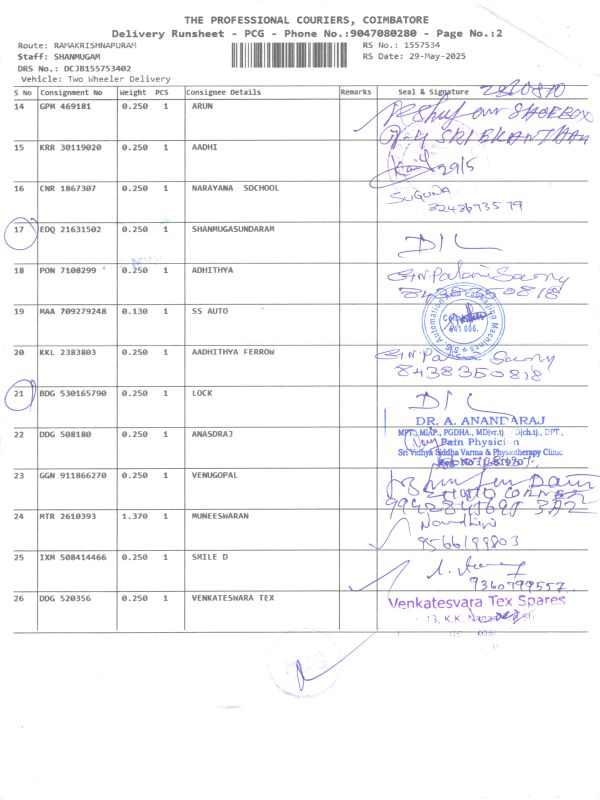 THE PROFESSIONAL COURIERS, COIMBATORE
Delivery Runsheet - PCG - Phone No.:9047080280 - Page No.:2
Route: RAMAKRISHNAPURAM RS No.: 1557534
Staff: SHANMUGAM RS Date: 29-May-2025
DRS No.: DCJB155753402
Vehicle: Two Wheeler Delivery
S No Consignment No Weight PCS Consignee Details Remarks Seal & Signature
14 GPM 469181 0.250 1 ARUN
SHOEBOX
15 KRR 30119020 0.250 1 AADHI SRI
29/5
16 CNR 1867307 0.250 1 NARAYANA SDCHOOL SUGUNA
17 EDQ 21631502 0.250 1 SHANMUGASUNDARAM D/L
18 PON 7108299 0.250 1 ADHITHYA
19 MAA 709279248 0.130 1 SS AUTO
641 006.
20 KKL 2383803 0.250 1 AADHITHYA FERROW
8438350818
21 BDG 530165790 0.250 1 LOCK D/L
22 DDG 508180 0.250 1 ANASDRAJ DR. A. ANANDARAJ
Pain Physician
Sri Vidhya Siddha Varma & Physiotherapy Clinic
23 GGN 911866270 0.250 1 VENUGOPAL
24 MTR 2610393 1.370 1 MUNEESWARAN
9566199803
25 IXM 508414466 0.250 1 SMILE D
9360799557
26 DDG 520356 0.250 1 VENKATESWARA TEX Venkatesvara Tex Spares
13, K.K.